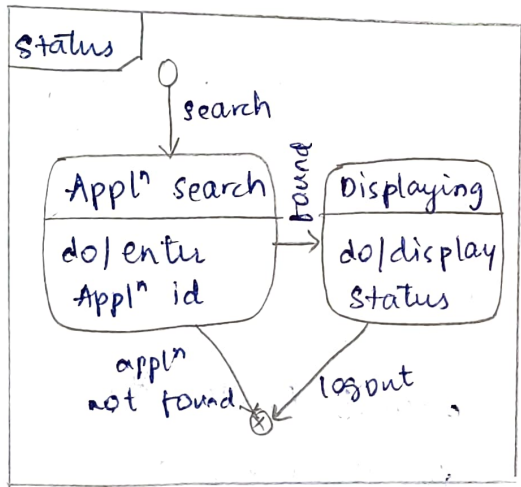 Status
search
Applⁿ search
do/enter
Applⁿ id
found
Displaying
do/display
Status
applⁿ
not found
logout